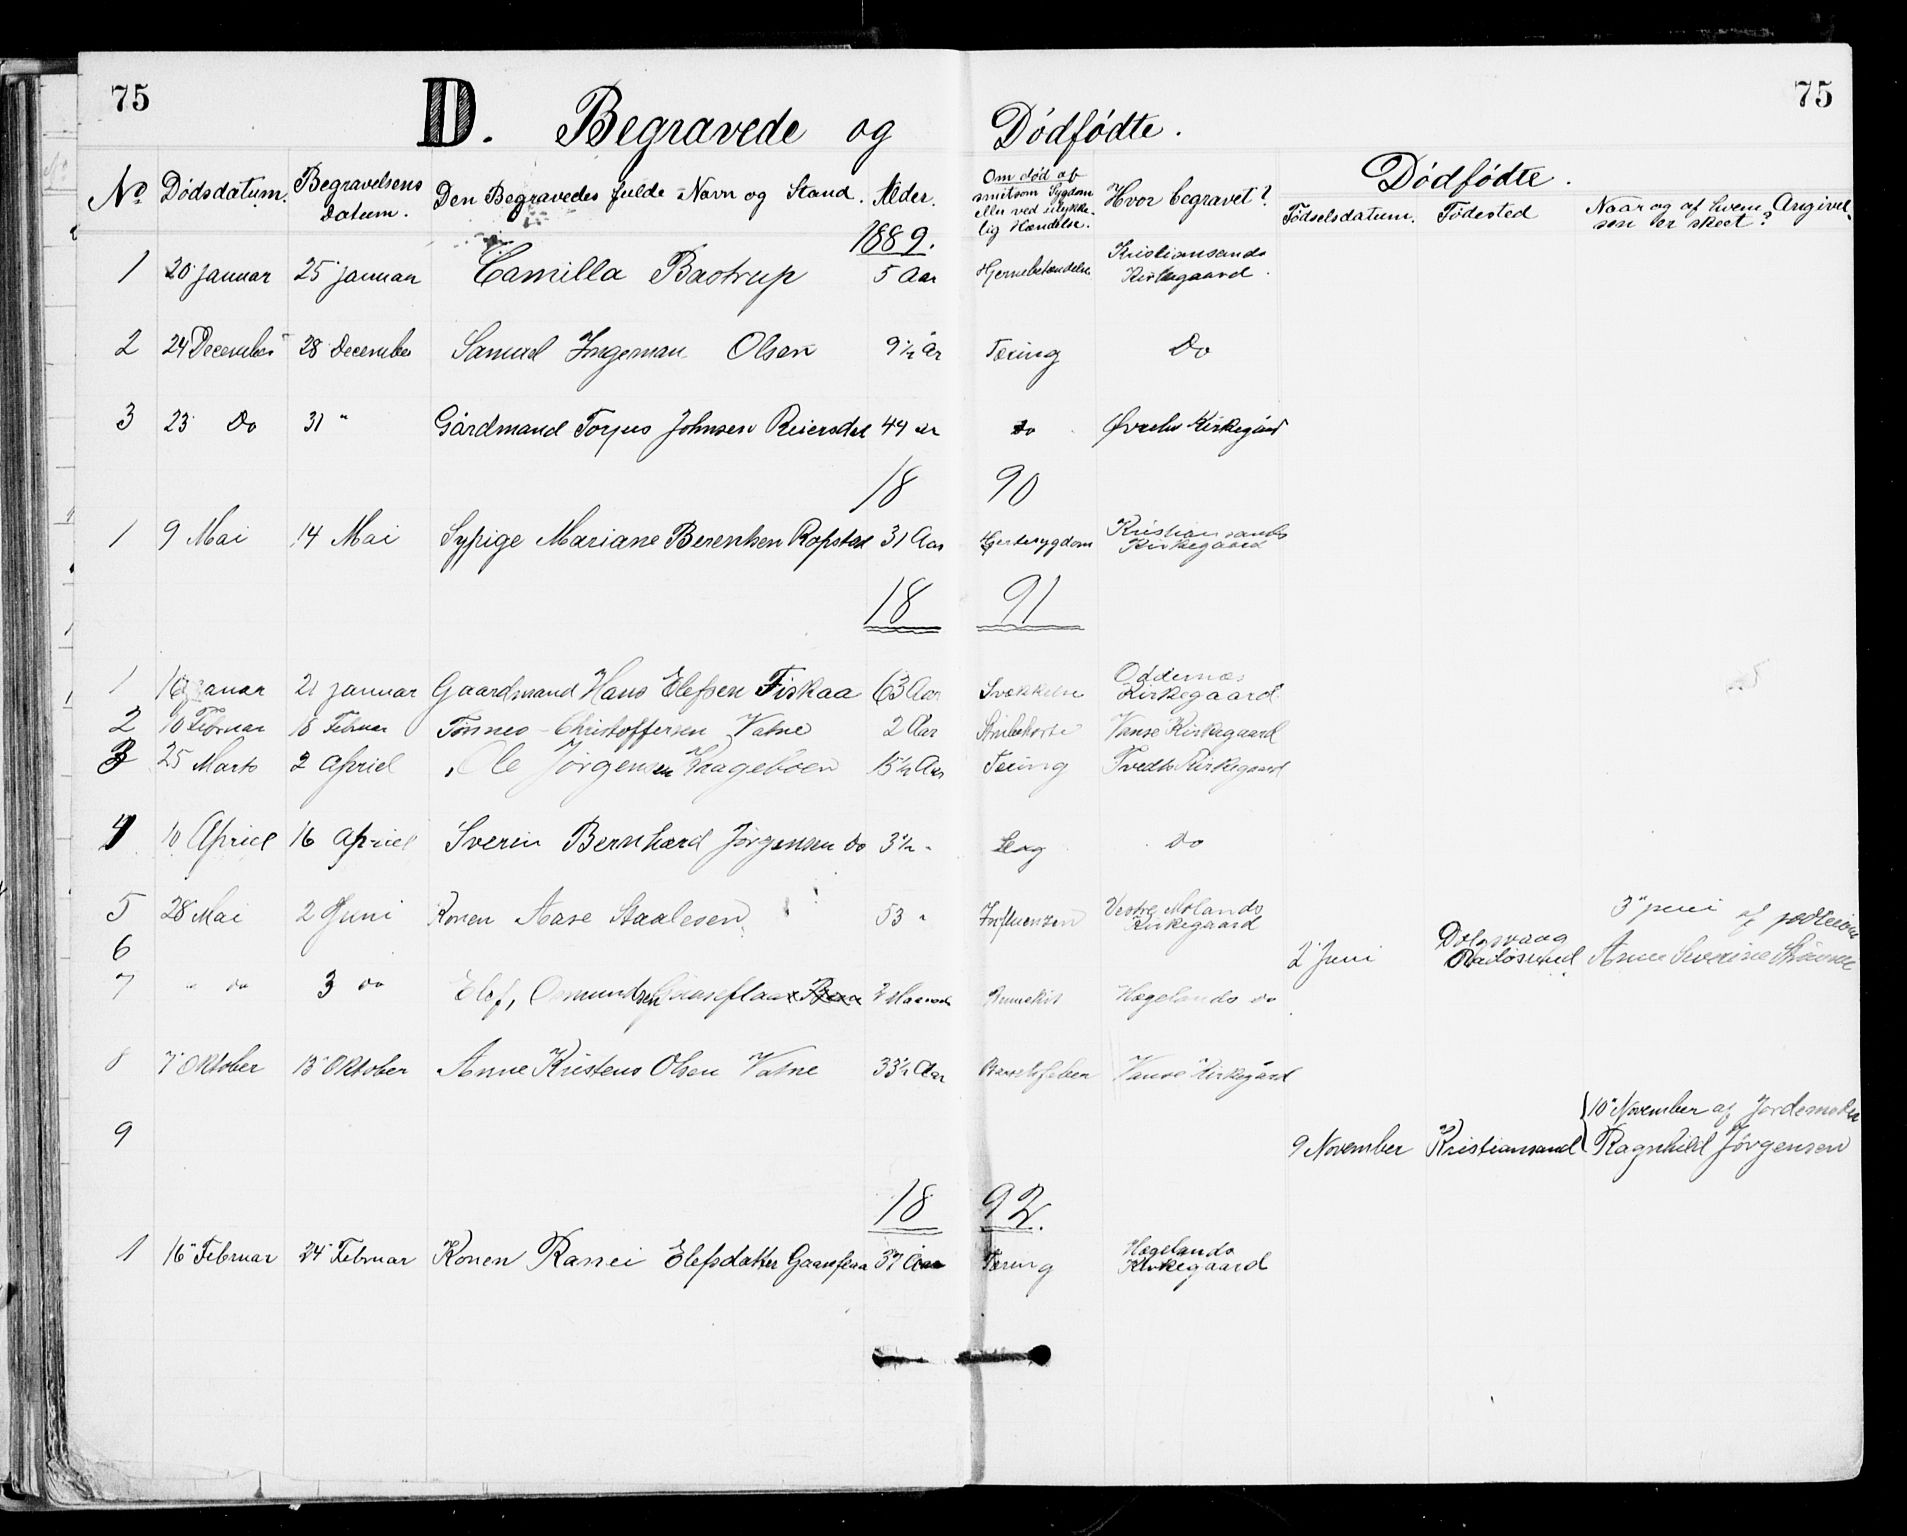 75 D. Begravede og Dødfødte. 75
No Dødsdatum. Begravelsens datum. Den Begravedes fulde Navn og Stand. Alder. Om død af smitsom Sygdom eller ved ulykkelig Hændelse. Hvor begravet? Dødfødte.
Fødselsdatum. Fødested Naar og af hvem Angivelsen er skeet?
1889.
1 20 Januar 25 Januar Camilla Bastrup 5 Aar Hjernebetændelse Kristiansands Kirkegaard.
2 24 December 28 December Samuel Ingeman Olsen 9½ År Tæring Do
3 23 Do 31 " Gårdmand Torjus Johnsen Reiersdal 44 år do Øvrebø Kirkegård
18 90
1 9 Mai 14 Mai Sypige Mariane Berentsen Ropstad 31 Aar Hjertesygdom Kristiansands Kirkegaard
18 91
1 16 Januar 21 Januar Gaardmand Hans Elefsen Fiskaa 63 Aar Svækkelse Oddernæs Kirkegaard
2 10 Februar 18 Februar Tønnes Christoffersen Vatne 2 Aar Strubehoste Vanse Kirkegaard
3 25 Marts 2 Apriel Ole Jørgensen Haugeboen 15½ Aar Tæring Tvedts Kirkegaard
4 10 Apriel 16 Apriel Sverin Bernhard Jørgensen do 3½ " do
5 28 Mai 2 Juni Konen Aase Staalesen 53 " Influenzen Vestre Molands Kirkegaard
6 2 Juni Dolgsvaag Randøsund 3 juni af Anne Severine
7 " do 3 do Elef, Osmundsen Gaaseflaa 2 Maaned Hægelands do
8 7 Oktober 13 Oktober Anne Kristens Olsen Vatne 33½ Aar Vanse Kirkegård
9 9 November Kristiansand 10 November af Jordemoder Ragnhild Jørgensen
18 92.
1 16 Februar 24 Februar Konen Rannei Elefsdatter Gaaseflaa 37 Aar Tæring Hægelands Kirkegaard